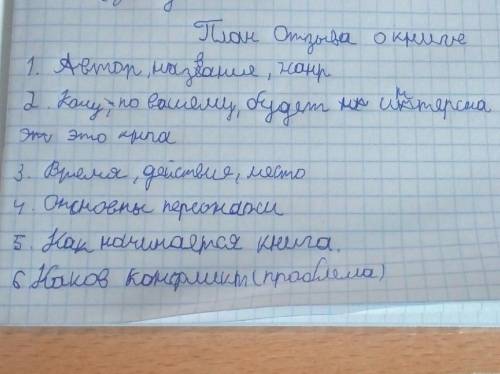 План Отзыва о книге
1. Автор, название, жанр
2. Кому, по вашему, будет интерсна
это книга
3. Время, действия, место
4. Основны персонажи
5. Как начинается книга.
6 Каков конфликт (проблема)